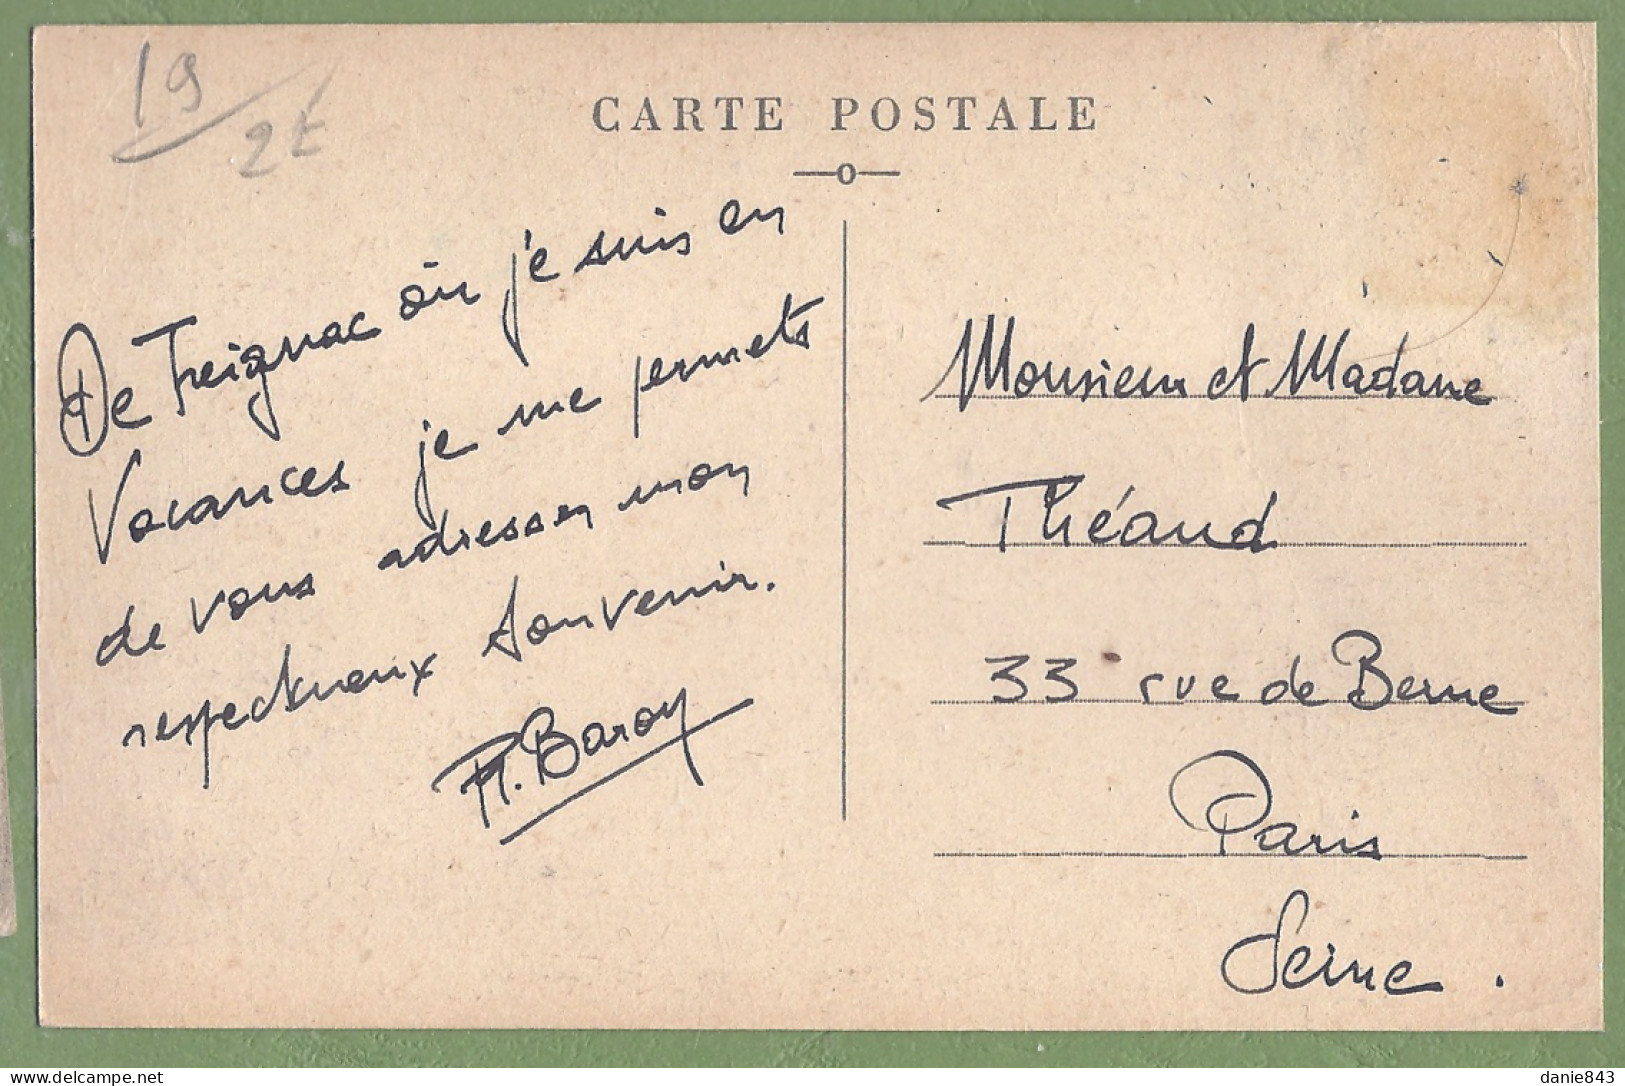 19
2€
CARTE POSTALE
De Treignac où je suis en
Vacances je me permets
de vous adresser mon
respectueux souvenir.
Baron
Monsieur et Madame
Théaud
33 rue de Berne
Paris
Seine.
danie843